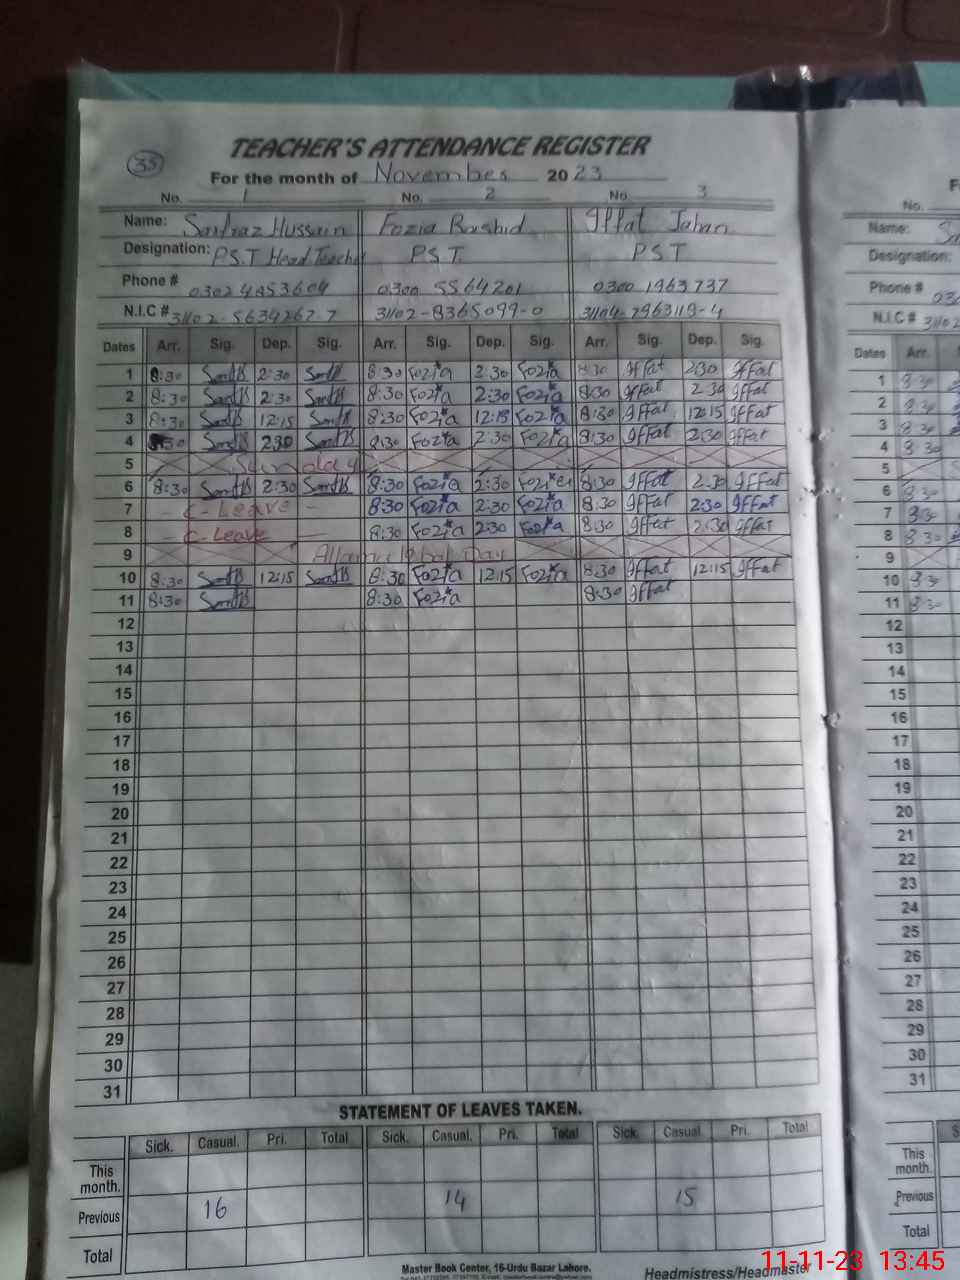 35
TEACHER'S ATTENDANCE REGISTER
For the month of November 2023
No. 1 No. 2 No. 3
Name: Sarfraz Hussain Fozia Rashid Iffat Jahan
Designation: P.S.T Head Teacher P.S.T. PST
Phone # 0302 4853604 0300 5564201 0300 1963737
N.I.C # 31102-5634267-7 31102-8365099-0 31104-7963118-4
Dates Arr. Sig. Dep. Sig. Arr. Sig. Dep. Sig. Arr. Sig. Dep. Sig.
1 8:30 2:30 8:30 Fozia 2:30 Fozia 8:30 Iffat 2:30 Iffat
2 8:30 2:30 8:30 Fozia 2:30 Fozia 8:30 Iffat 2:30 Iffat
3 8:30 12:15 8:30 Fozia 12:15 Fozia 8:30 Iffat 12:15 Iffat
4 8:30 2:30 8:30 Fozia 2:30 Fozia 8:30 Iffat 2:30 Iffat
5 Sunday
6 8:30 2:30 8:30 Fozia 2:30 Fozia 8:30 Iffat 2:30 Iffat
7 - C-Leave - 8:30 Fozia 2:30 Fozia 8:30 Iffat 2:30 Iffat
8 - C-Leave - 8:30 Fozia 2:30 Fozia 8:30 Iffat 2:30 Iffat
9 Allama Iqbal Day
10 8:30 12:15 8:30 Fozia 12:15 Fozia 8:30 Iffat 12:15 Iffat
11 8:30 8:30 Fozia 8:30 Iffat
12
13
14
15
16
17
18
19
20
21
22
23
24
25
26
27
28
29
30
31
STATEMENT OF LEAVES TAKEN.
Sick. Casual. Pri. Total Sick. Casual. Pri. Total Sick. Casual. Pri. Total
This month.
Previous 16 14 15
Total
Master Book Center, 16-Urdu Bazar Lahore.
Headmistress/Headmaster
No.
Name:
Designation:
Phone # 030
N.I.C # 31102
Dates Arr.
1 8:30
2 8:30
3 8:30
4 8:30
5
6 8:30
7 8:30
8 8:30
9
10 8:30
11 8:30
12
13
14
15
16
17
18
19
20
21
22
23
24
25
26
27
28
29
30
31
This month.
Previous
Total
11-11-23 13:45